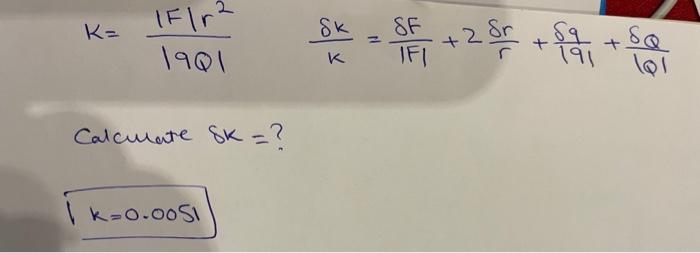 K= |F|r² / |qQ|   δk/k = δF/|F| + 2 δr/r + δq/|q| + δQ/|Q|
Calculate δK = ?
k=0.0051